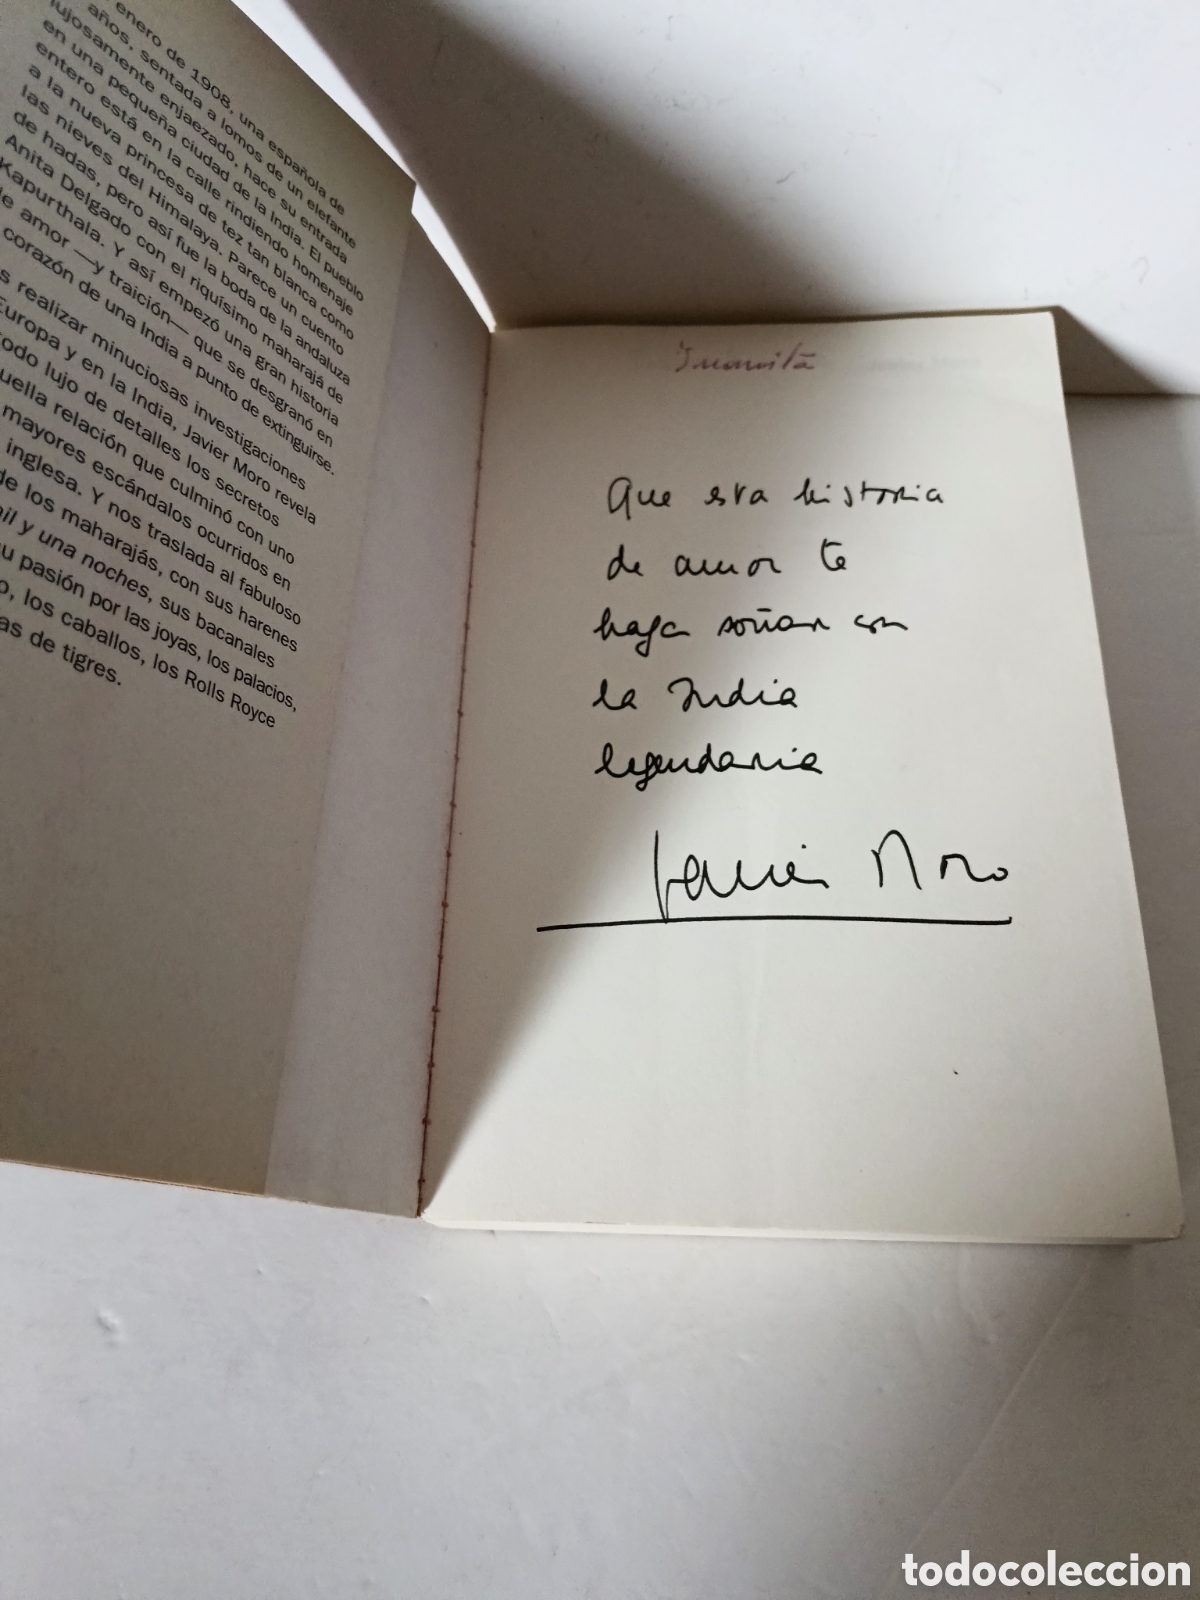 enero de 1908, una española de
años, sentada a lomos de un elefante
lujosamente enjaezado, hace su entrada
en una pequeña ciudad de la India. El pueblo
entero está en la calle rindiendo homenaje
a la nueva princesa de tez tan blanca como
las nieves del Himalaya. Parece un cuento
de hadas, pero así fue la boda de la andaluza
Anita Delgado con el riquísimo maharajá de
Kapurthala. Y así empezó una gran historia
de amor —y traición— que se desgranó en
corazón de una India a punto de extinguirse.
s realizar minuciosas investigaciones
Europa y en la India, Javier Moro revela
todo lujo de detalles los secretos
uella relación que culminó con uno
mayores escándalos ocurridos en
inglesa. Y nos traslada al fabuloso
de los maharajás, con sus harenes
mil y una noches, sus bacanales
u pasión por las joyas, los palacios,
o, los caballos, los Rolls Royce
as de tigres.
Juanita
Que esta historia
de amor te
haga soñar con
la India
legendaria
Javier Moro
todocoleccion